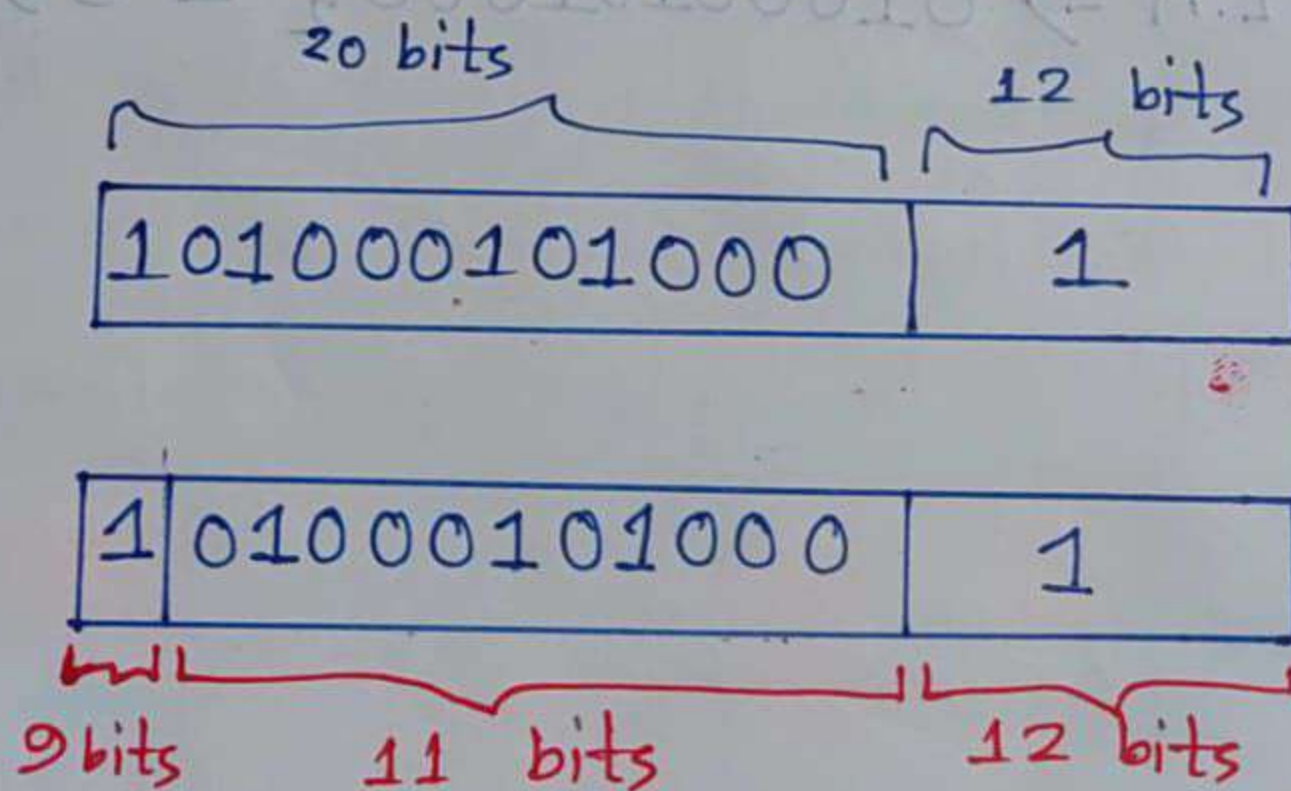 20 bits
12 bits
101000101000 1
1 01000101000 1
9 bits 11 bits 12 bits